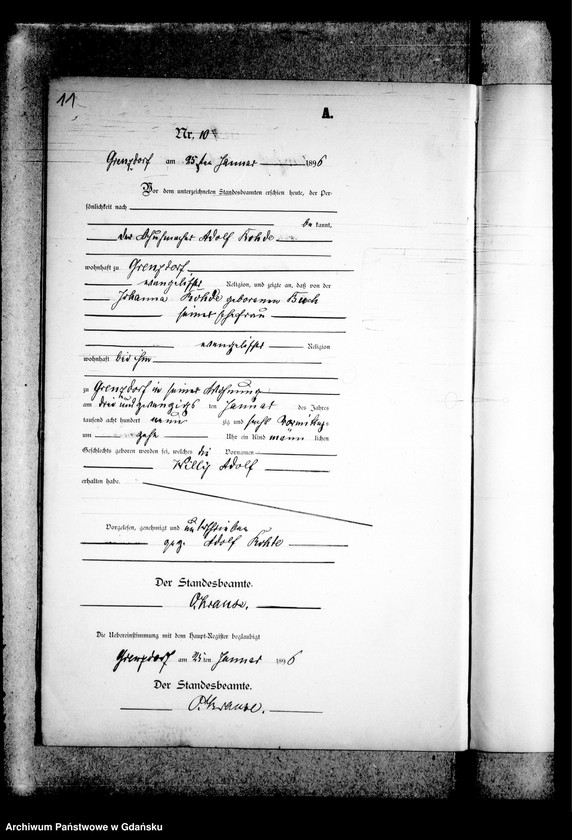 11
A.
Nr. 10
Grenzdorf am 25ten Januar 1896
Vor dem unterzeichneten Standesbeamten erschien heute, der Per-
sönlichkeit nach
be kannt,
der Schuhmacher Adolf Rohde
wohnhaft zu Grenzdorf
evangelischer Religion, und zeigte an, daß von der
Johanna Rohde geborenen
seiner Ehefrau
evangelischer Religion
wohnhaft bei ihm
zu Grenzdorf in seiner Wohnung
am drei und zwanzigsten Januar des Jahres
tausend acht hundert neun zig und sechs Vormittags
um zehn Uhr ein Kind männ lichen
Geschlechts geboren worden sei, welches die Vornamen
Willy Adolf
erhalten habe.
Vorgelesen, genehmigt und unterschrieben
gez. Adolf Rohde
Der Standesbeamte.
O. Krause.
Die Uebereinstimmung mit dem Haupt-Register beglaubigt
Grenzdorf am 25 ten Januar 1896
Der Standesbeamte.
O. Krause.
Archiwum Państwowe w Gdańsku